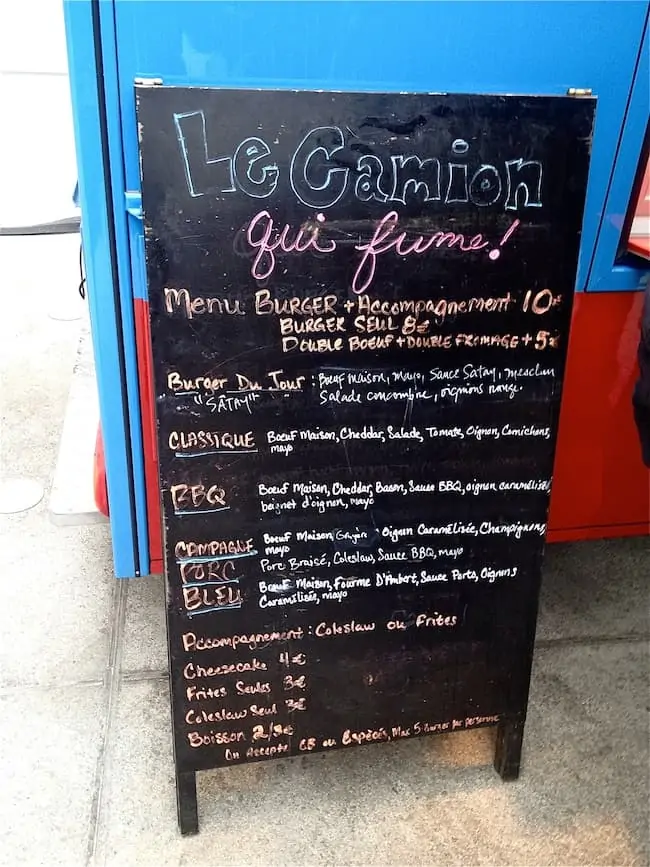 Le Camion
qui fume!
Menu BURGER + Accompagnement 10€
BURGER SEUL 8€
DOUBLE BOEUF + DOUBLE FROMAGE + 5€
Burger Du Jour : Boeuf Maison, mayo, Sauce Satay, mesclun
"SÄTAY" Salade concombre, oignions rouge.
CLASSIQUE Boeuf Maison, Cheddar, Salade, Tomate, Oignon, Cornichons,
mayo
BBQ Boeuf Maison, Cheddar, Bacon, Sauce BBQ, oignon caramélisés,
beignet d'oignon, mayo
CAMPAGNE Boeuf Maison, Oignon Caramélisée, Champignons,
mayo
PORC Porc Braisé, Coleslaw, Sauce BBQ, mayo
BLEU Boeuf Maison, Fourme D'Ambert, Sauce Porto, Oignons
Caramélisés, mayo
Accompagnement : Coleslaw ou Frites
Cheezecake 4€
Frites Seules 3€
Coleslaw Seul 3€
Boisson 2/3€
On Accepte CB ou Espèces, Max 5 Burger par personne